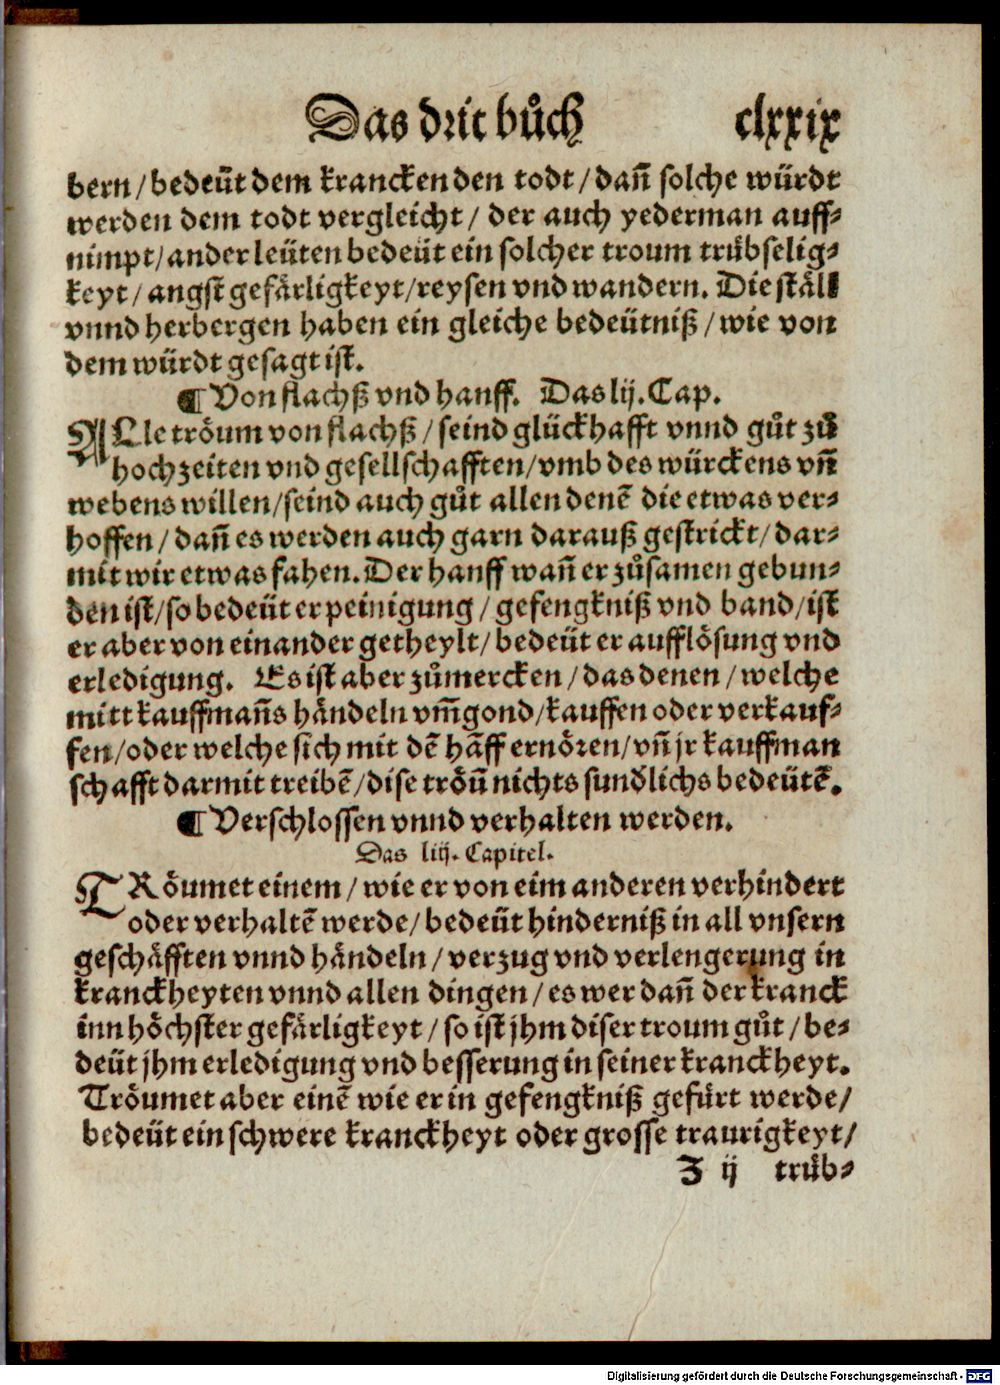 Das drit bůch clxxix
bern/bedeüt dem krancken den todt/dañ solche würdt
werden dem todt vergleicht/ der auch yederman auff-
nimpt/ander leüten bedeüt ein solcher troum trübselig-
keyt/angst gefärligkeyt/reysen vnd wandern. Die ställ
vnnd herbergen haben ein gleiche bedeütniß/wie von
dem würdt gesagt ist.
¶ Von flachß vnd hanff. Das lij. Cap.
ALle tröum von flachß/seind glückhafft vnnd gůt zů
hochzeiten vnd gesellschafften/vmb des würckens vñ
webens willen/seind auch gůt allen denē die etwas ver-
hoffen/dañ es werden auch garn darauß gestrickt/dar-
mit wir etwas fahen. Der hanff wañ er zůsamen gebun-
den ist/so bedeüt er peinigung/gefengkniß vnd band/ist
er aber von einander getheylt/bedeüt er aufflösung vnd
erledigung. Es ist aber zůmercken/das denen/welche
mitt kauffmañs händeln vm̃gond/kauffen oder verkauf-
fen/oder welche sich mit dē hāff ernören/vñ jr kauffman
schafft darmit treibē/dise tröũ nichts sundlichs bedeütē.
¶ Verschlossen vnnd verhalten werden.
Das liij. Capitel.
TRöumet einem/wie er von eim anderen verhindert
oder verhaltē werde/bedeüt hinderniß in all vnsern
geschäfften vnnd händeln/verzug vnd verlengerung in
kranckheyten vnnd allen dingen/es wer dañ der kranck
inn höchster gefärligkeyt/so ist jhm diser troum gůt/be-
deüt jhm erledigung vnd besserung in seiner kranckheyt.
Tröumet aber einē wie er in gefengkniß gefürt werde/
bedeüt ein schwere kranckheyt oder grosse traurigkeyt/
Z ij trüb-
Digitalisierung gefördert durch die Deutsche Forschungsgemeinschaft - DFG